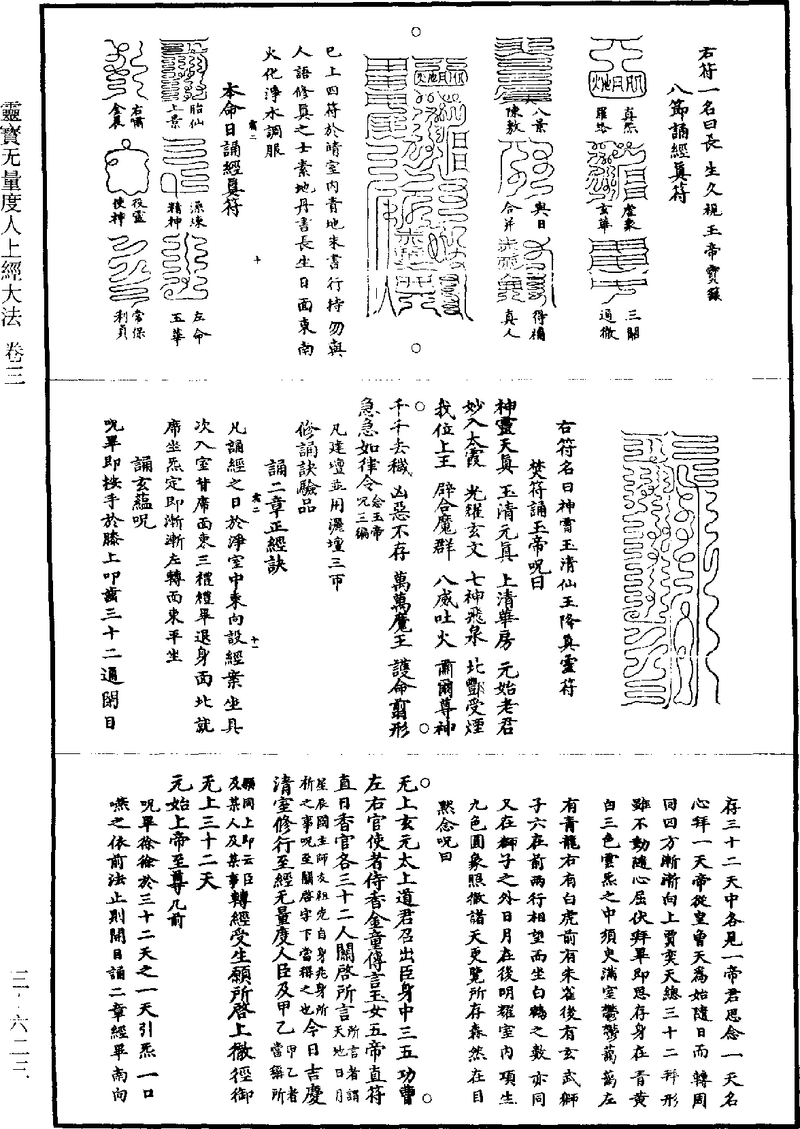 右符一名曰長生久視玉帝寶籙
八節誦經真符
真炁
羅絡
虛衆
玄華
三關
通徹
八景
陳敷
與日
合并
得補
真人
巳上四符於晴室内青地朱書行持勿與
人語修真之士素地丹書長生日面東南
火化淨水調服
本命日誦經真符
胎仙
上景
添凍
精神
左命
玉華
右嘯
金晨
役靈
使神
常保
利貞
右符名曰神霄玉清仙王降真靈符
焚符誦玉帝呪曰
神靈天真 玉清元真 上清華房 元始老君
妙入太霞 光耀玄文 七神飛泉 北酆受煙
我位上王 辟合魔群 八威吐火 肅爾尊神
千千去穢 凶惡不存 萬萬魔王 護命翦形
急急如律令 念玉帝呪三徧
凡建壇並用灑壇三帀
修誦訣驗品
誦二章正經訣
凡誦經之日於淨室中東向設經案坐具
次入室甘席面東三禮禮畢退身面北就
席坐炁定即漸漸左轉面東平坐
誦玄蘊呪
呪畢即按手於膝上叩齒三十二通閉目
存三十二天中各見一帝君思念一天名
心拜一天帝從皇曾天爲始隨日而轉周
回四方漸漸向上賈奕天總三十二拜形
雖不動隨心屈伏拜畢即思存身在青黄
白三色雲炁之中須臾滿室鬱鬱藹藹左
有青龍右有白虎前有朱雀後有玄武獅
子六在前兩行相望而坐白鶴之數亦同
又在獅子之外日月在後明耀室内項生
九色圓象照徹諸天更覽所存森然在目
黙念呪曰
无上玄元太上道君召出臣身中三五功曹
左右官使者侍香金童傳言玉女五帝直符
直日香官各三十二人關啓所言 所言者謂天地日月
星辰國主師友祖先自身兆身所祈之事呪至關啓守下當得之也 今日吉慶
清室修行至經无量度人臣及甲乙 甲乙者當藥所
願同上即云臣及某人及某事 轉經受生願所啓上徹徑御
无上三十二天
元始上帝至尊几前
呪畢徐徐於三十二天之一天引炁一口
嚥之依前法止則開目誦二章經畢南向
靈寶无量度人上經大法 卷三
三·六二三